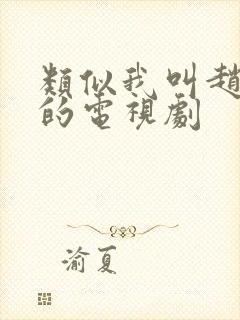 類似我叫趙
的電視劇
渝夏